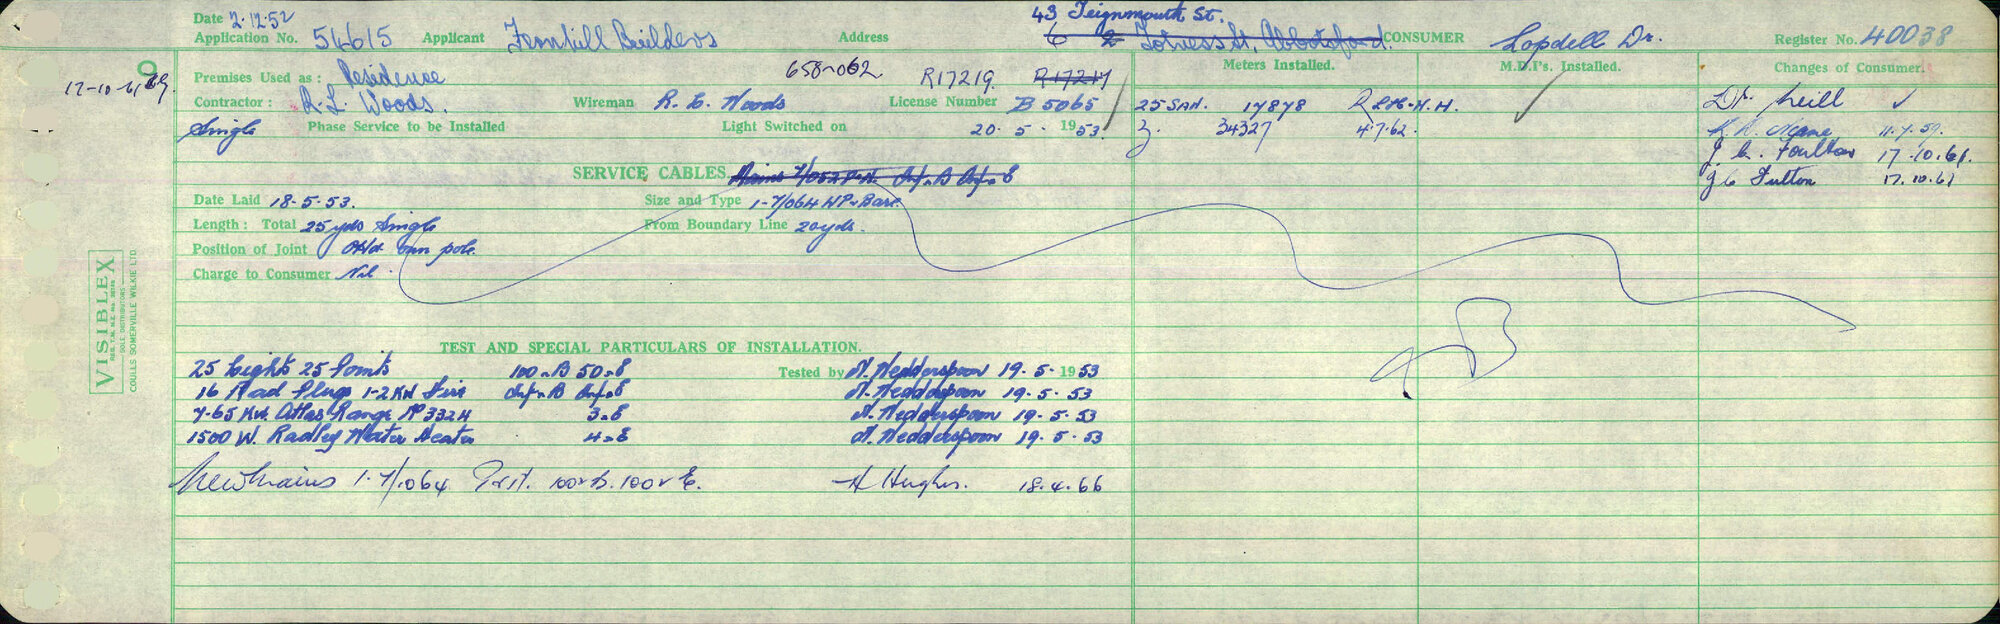 43 Teignmouth St.
Date 2.12.52
Application No. 54615 Applicant Fernhill Builders Address 6 2 Totness St, Abbotsford. CONSUMER Lopdell Dr. Register No. 40038
9
17-10-61
Premises Used as: Residence 658-062 R17219 R17217 Meters Installed. M.D.I's. Installed. Changes of Consumer.
Contractor: R. L. Woods. Wireman R. L. Woods License Number B 5065 25 SAN. 17878 Dr. Neill
Single Phase Service to be Installed Light Switched on 20. 5. 1953. 3. 34327 4.7.62. 11.7.59.
J. C. Foulton 17.10.61.
SERVICE CABLES. Mains 7/052 P.N. Inf.B Inf.E J C Fulton 17.10.61
Date Laid 18.5.53. Size and Type 1-7/064 HP. Bare
Length: Total 25yds Single From Boundary Line 20yds.
Position of Joint on pole.
Charge to Consumer Nil
VISIBLEX
REG. T.M. N.Z. No.
SOLE DISTRIBUTORS
COULLS SOMERVILLE WILKIE LTD.
TEST AND SPECIAL PARTICULARS OF INSTALLATION.
25 Lights 25 Points 100.B 50.E Tested by N. Hedderspoon 19.5.1953
16 Rad Plugs 1-2KW Fire Inf.B Inf.E N. Hedderspoon 19.5.53
7.65 KW. Atlas Range No 332H 3.E N. Hedderspoon 19.5.53
1500 W. Radley Water Heater 4.E N. Hedderspoon 19.5.53
New Mains 1-7/.064 100 B. 100 E. H Hughes. 18.4.66